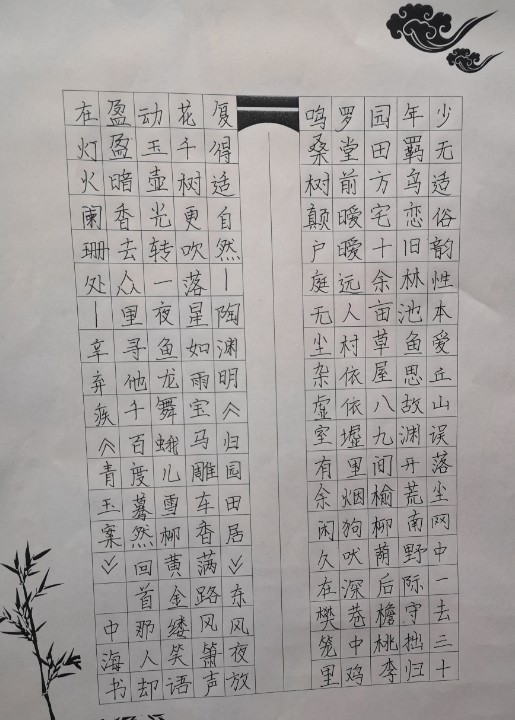 少无适俗韵性本爱丘山误落尘网中一去三十
年羁鸟恋旧林池鱼思故渊开荒南野际守拙归
园田方宅十余亩草屋八九间榆柳荫后檐桃李
罗堂前暧暧远人村依依墟里烟狗吠深巷中鸡
鸣桑树颠户庭无尘杂虚室有余闲久在樊笼里
复得适自然—陶渊明《归园田居》东风夜放
花千树更吹落星如雨宝马雕车香满路风箫声
动玉壶光转一夜鱼龙舞蛾儿雪柳黄金缕笑语
盈盈暗香去众里寻他千百度蓦然回首那人却
在灯火阑珊处—辛弃疾《青玉案》 中海书